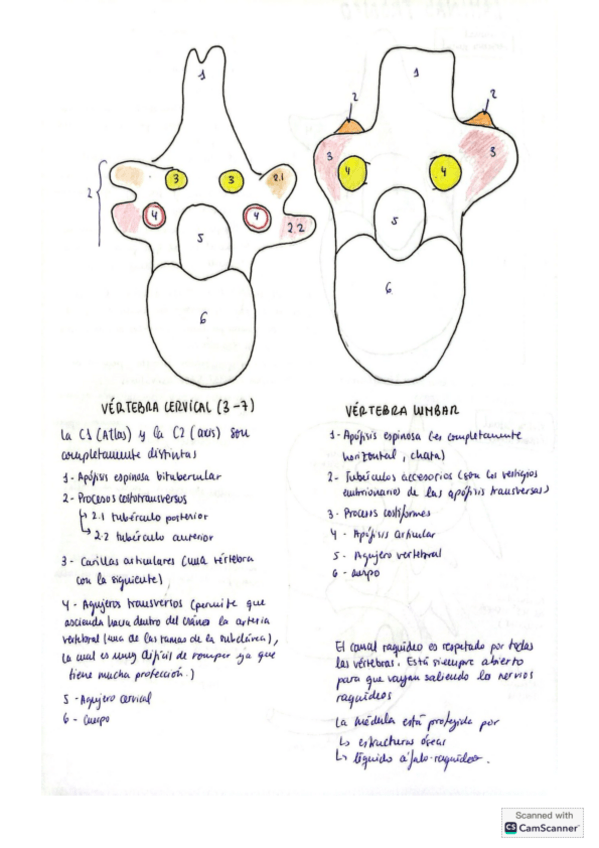 1
2
3
3
2.1
4
4
2.2
5
6
1
2
2
3
3
4
4
5
6
VÉRTEBRA CERVICAL (3-7)
La C1 (Atlas) y la C2 (axis) son
completamente distintas
1- Apófisis espinosa bitubercular
2- Procesos costotransversos
↳ 2.1 tubérculo posterior
↳ 2.2 tubérculo anterior
3- Carillas articulares (una vértebra
con la siguiente)
4- Agujeros transversos (permite que
ascienda hacia dentro del cráneo la arteria
vertebral (una de las ramas de la subclávica),
la cual es muy difícil de romper ya que
tiene mucha protección.)
5- Agujero cervical
6- Cuerpo
VÉRTEBRA LUMBAR
1- Apófisis espinosa (es completamente
horizontal, chata)
2- Tubérculos accesorios (son los vestigios
embrionarios de las apófisis transversas)
3- Procesos costiformes
4- Apófisis articular
5- Agujero vertebral
6- Cuerpo
El canal raquídeo es respetado por todas
las vértebras. Está siempre abierto
para que vayan saliendo los nervios
raquídeos
La médula está protegida por
↳ estructuras óseas
↳ líquido cefalo-raquídeo.
Scanned with
CS CamScanner